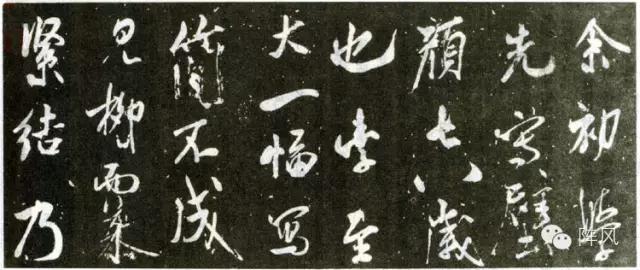 余初學
先寫壁
顏七八歲
也字至
大一幅寫
簡不成
見柳而慕
緊結乃
阵风